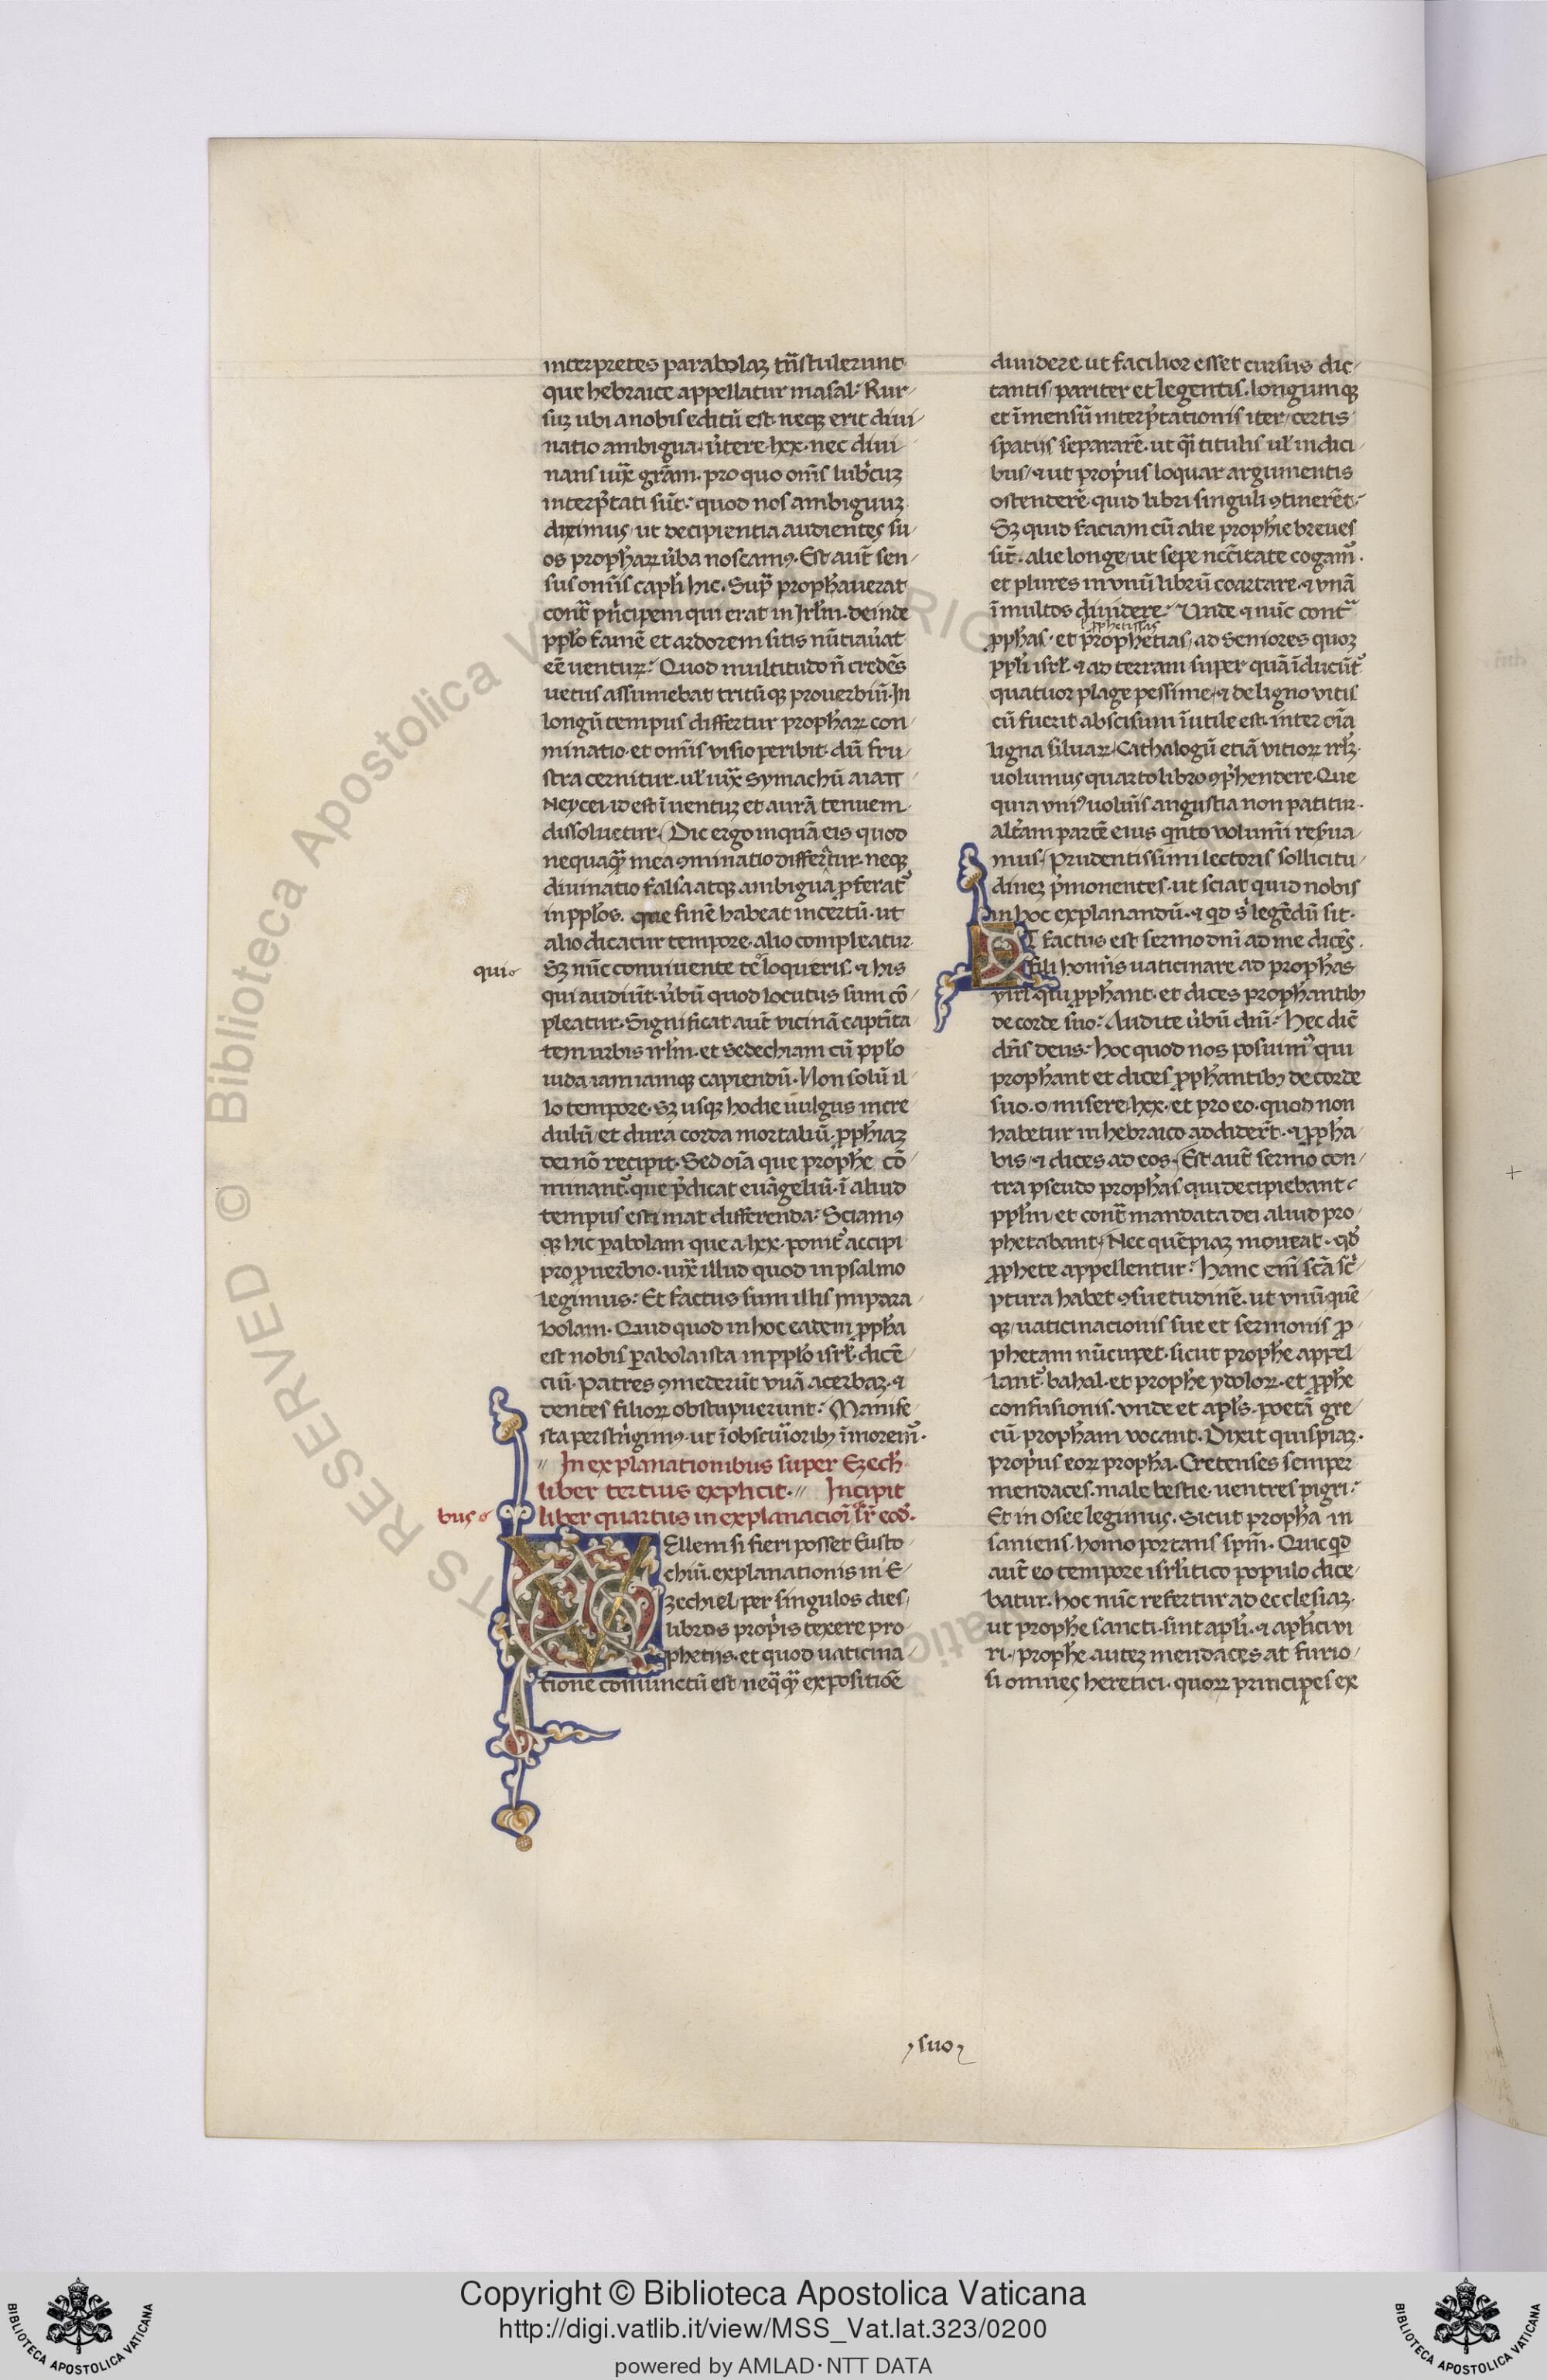 interpretes parabolaʒ tn̄stulerunt
que hebraice appellatur masal: Rur-
suʒ ubi a nobis editū est neqʒ erit diui-
natio ambigua. u̓tere lxx. nec diui-
nans iux̄ grām. pro quo oms̄ lubͥcuʒ
interp̄tati sūt: quod nos ambiguuʒ
diximus, ut decipientia audientes su-
os prophaꝝ u̓ba noscamꝰ. Est aūt sen-
sus omīs capłi hic. Sup̄ prophauerat
contͣ pͥncipem qui erat in Jrlm̄. deinde
ppło famē et ardorem sitis nūtiau̓at
eē uentuꝝ: Quod multitudo n̄ credēs
uetus assumebat tritūqʒ prouerbiū. In
longū tempus differtur prophaꝝ con-
minatio. et omīs visio peribit. dū fru-
stra cernitur. uł iux̄ Symachū aiaπ-
Neycei. id est ī uentuʒ et aurā tenuem
dissoluetur. Dic ergo inquā eis quod
nequaqͣʒ mea ꝯminatio differ̄tur. neqʒ
diuinatio falsa atqʒ ambigua ꝓferat᷑
in ppłos. que finē habeat incertū. ut
alio dicatur tempore. alio compleatur.
quio
Sʒ nūc conuiuente te loqueris. ⁊ his
qui audiūt. u̓bū quod locutus sum cō-
pleatur. Significat aūt vicinā captīta
tem urbis irlm̄. et Sedechiam cū ppło
iuda iam iamqʒ capiendū. Non solū il-
lo tempore. sʒ usqʒ hodie uulgus incre
dulū et dura corda mortaliū. ꝓphiaʒ
dei nō recipit. Sed oīa que prophe cō-
minant᷑. que p̄dicat euāgeliū. ī aliud
tempus estimat differenda: Sciamꝰ
qʒ hic ꝑabolam que a lxx. ponit᷑ accipi
pro prouerbio. iux̄ illud quod in psalmo
legimus: Et factus sum illis in para-
bolam. Quid quod in hoc eadem ꝓpha
est nobis ꝑabola ista in ppło isrł. dicē-
ciū. Patres ꝯmederūt vuā acerbaʒ. ⁊
dentes filioꝝ obstupuerunt: Manife-
sta perstrīgimꝰ. ut ī obscuͥoribꝫ īmorem᷑.
In explanationibus super Ezech.
liber tertius explicit. Incipit
buso
liber quartus in explanacioī sr̄ eoꝺ.
Vellem si fieri posset Eusto-
chiū. explanationis in E-
zechiel, per singulos dies,
libros propͥis texere pro
phetijs. et quod uaticina-
tione coniunctū est, neqͣqͣʒ expositiōe
diuidere. ut facilior esset cursus dic-
tantis, pariter et legentis. longumqʒ
et īmensū interp̄tationis iter, certis
spatijs separarē. ut qͣi titulis uł indici-
bus, ⁊ ut propͥus loquar argumentis
ostenderē. quid libri singuli ꝯtinerēt:
Sʒ quid faciam cū alie prophie breues
sūt. alie longe, ut sepe nccītate cogam᷑.
et plures in vnū librū coartare. ⁊ vnā
ī multos diuidere: Unde ⁊ nūc contͣ
ꝓphetissas
ꝓphas. et prophetias, ad Seniores quoʒ
ppłi isrł. ⁊ ad terram super quā īducūt᷑
quatuor plage pessime, ⁊ de ligno vitis
cū fuerit abscisum īutile est. inter oīa
ligna siluaꝝ. Cathalogū etiā vitioꝝ irłʒ.
uolumus quarto libro ꝯp̄hendere. Que
quia vniꝰ uolūīs angustia non patitur.
altāam partē eius qͥnto volumī res̄ua-
mus. prudentissimi lectoris sollicitu-
dineʒ p̄monentes. ut sciat quid nobis
in hoc explanandū. ⁊ qd s̄ legēdū sit.
ET factus est sermo dnī ad me dicēs.
fili homīs uaticinare ad prophas
yirł. qui ꝓphant. et dices prophantibꝫ
de corde suo: Audite u̓bū dnī: Hec dic̄
dn̄s deus: hoc quod nos posuimꝰ qui
prophant et dices ꝓphantibꝫ de corde
suo. o, misere, lxx. et pro eo. quod non
habetur in hebraico addider̄t. ⁊ ꝓpha
bis, ⁊ dices ad eos. Est aūt sermo con-
tra pseudo prophas qui decipiebant
ppłm, et contͣ mandata dei aliud pro-
phetabant. Nec quēpiaʒ moueat. qꝺ
ꝓphete appellentur: hanc enī scā scͥ-
ptura habet ꝯsuetudinē. ut vnūquē
qʒ, uaticinacionis sue et sermonis ꝓ-
phetam nūcupet. sicut prophe appel
lant᷑ bahal. et prophe ydoloꝝ. et ꝓphe
confusionis. vnde et apłs. poetā gre-
cū propham vocant. Dixit quispiaʒ.
propͥus eoꝝ propha. Cretenses semper
mendaces. male bestie. uentres pigri:
Et in Osee legimus. Sicut propha in
saniens. homo portans spm̄. Quicqd
aūt eo tempore isrłitico populo dice-
batur. hoc nūc refertur ad ecclesiaʒ.
ut prophe sancti. sint apłi. ⁊ apłici vi
ri. prophe auteʒ mendaces at furio-
si omnes heretici. quoꝝ principes ex
suo
© Biblioteca Apostolica Vaticana
Copyright © Biblioteca Apostolica Vaticana
http://digi.vatlib.it/view/MSS_Vat.lat.323/0200
powered by AMLAD·NTT DATA
BIBLIOTECA APOSTOLICA VATICANA
BIBLIOTECA APOSTOLICA VATICANA